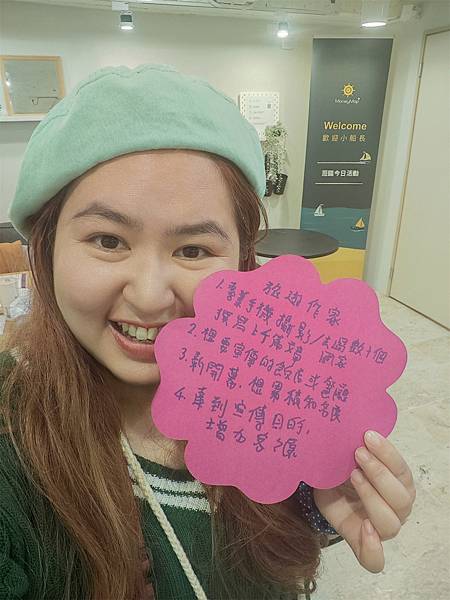 MoneyMap
Welcome
歡迎小船長
蒞臨今日活動
旅遊作家
1. 專業手機攝影/去過數十個
撰寫上千篇文章 國家
2. 想要宣傳的飯店或餐廳
3. 新開幕,想累積知名度
4. 達到宣傳目的,
增加客源